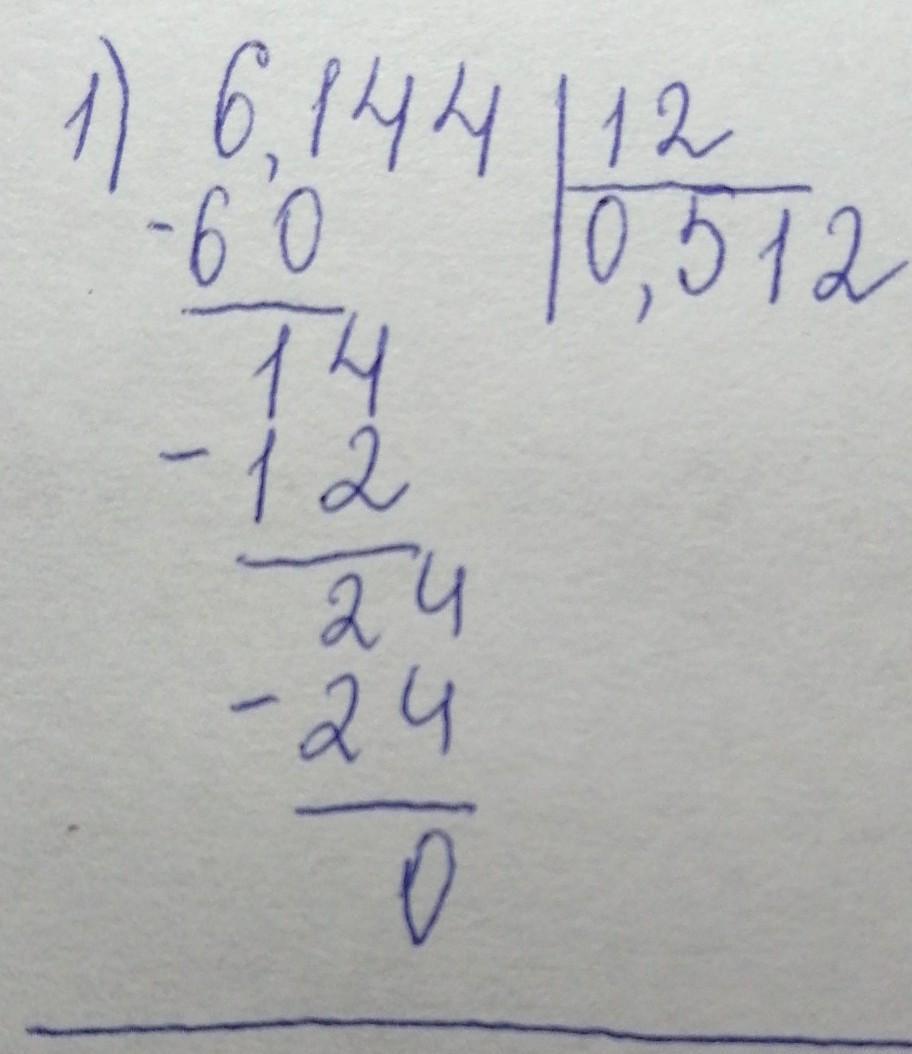 1) 6,144 | 12
-60 | 0,512
14
-12
24
-24
0